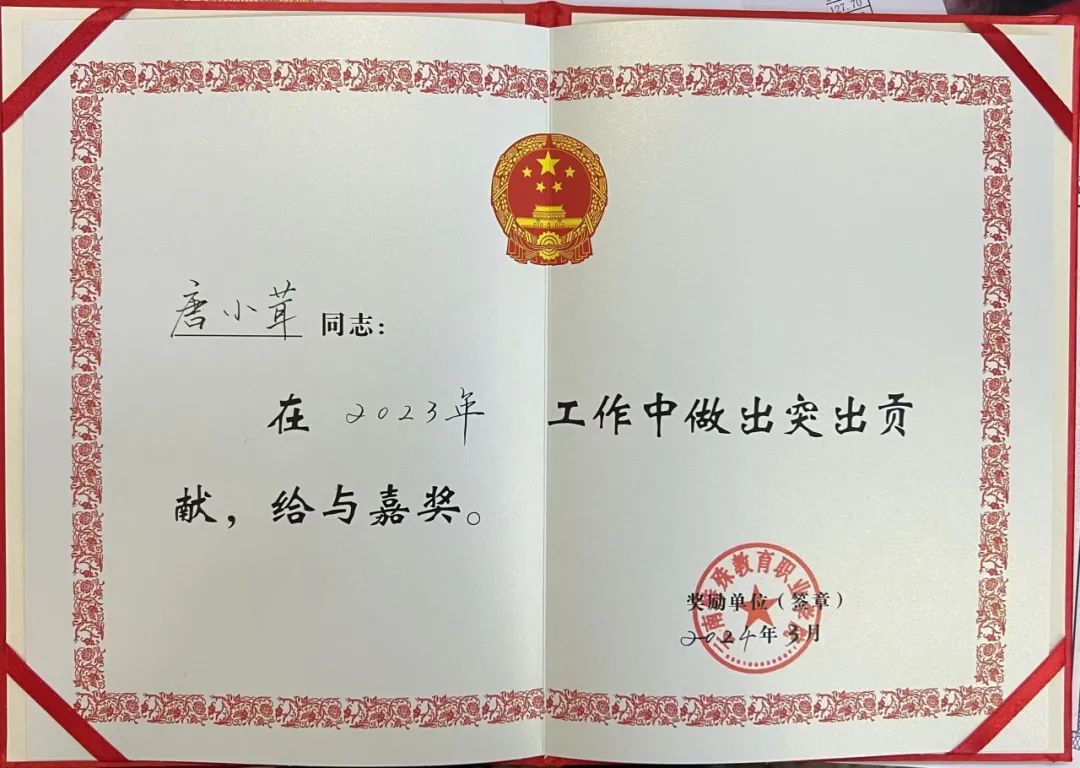 127.70
唐小茸 同志：
在 2023年 工作中做出突出贡
献，给与嘉奖。
奖励单位（签章）
2024年3月
南特殊教育职业学院